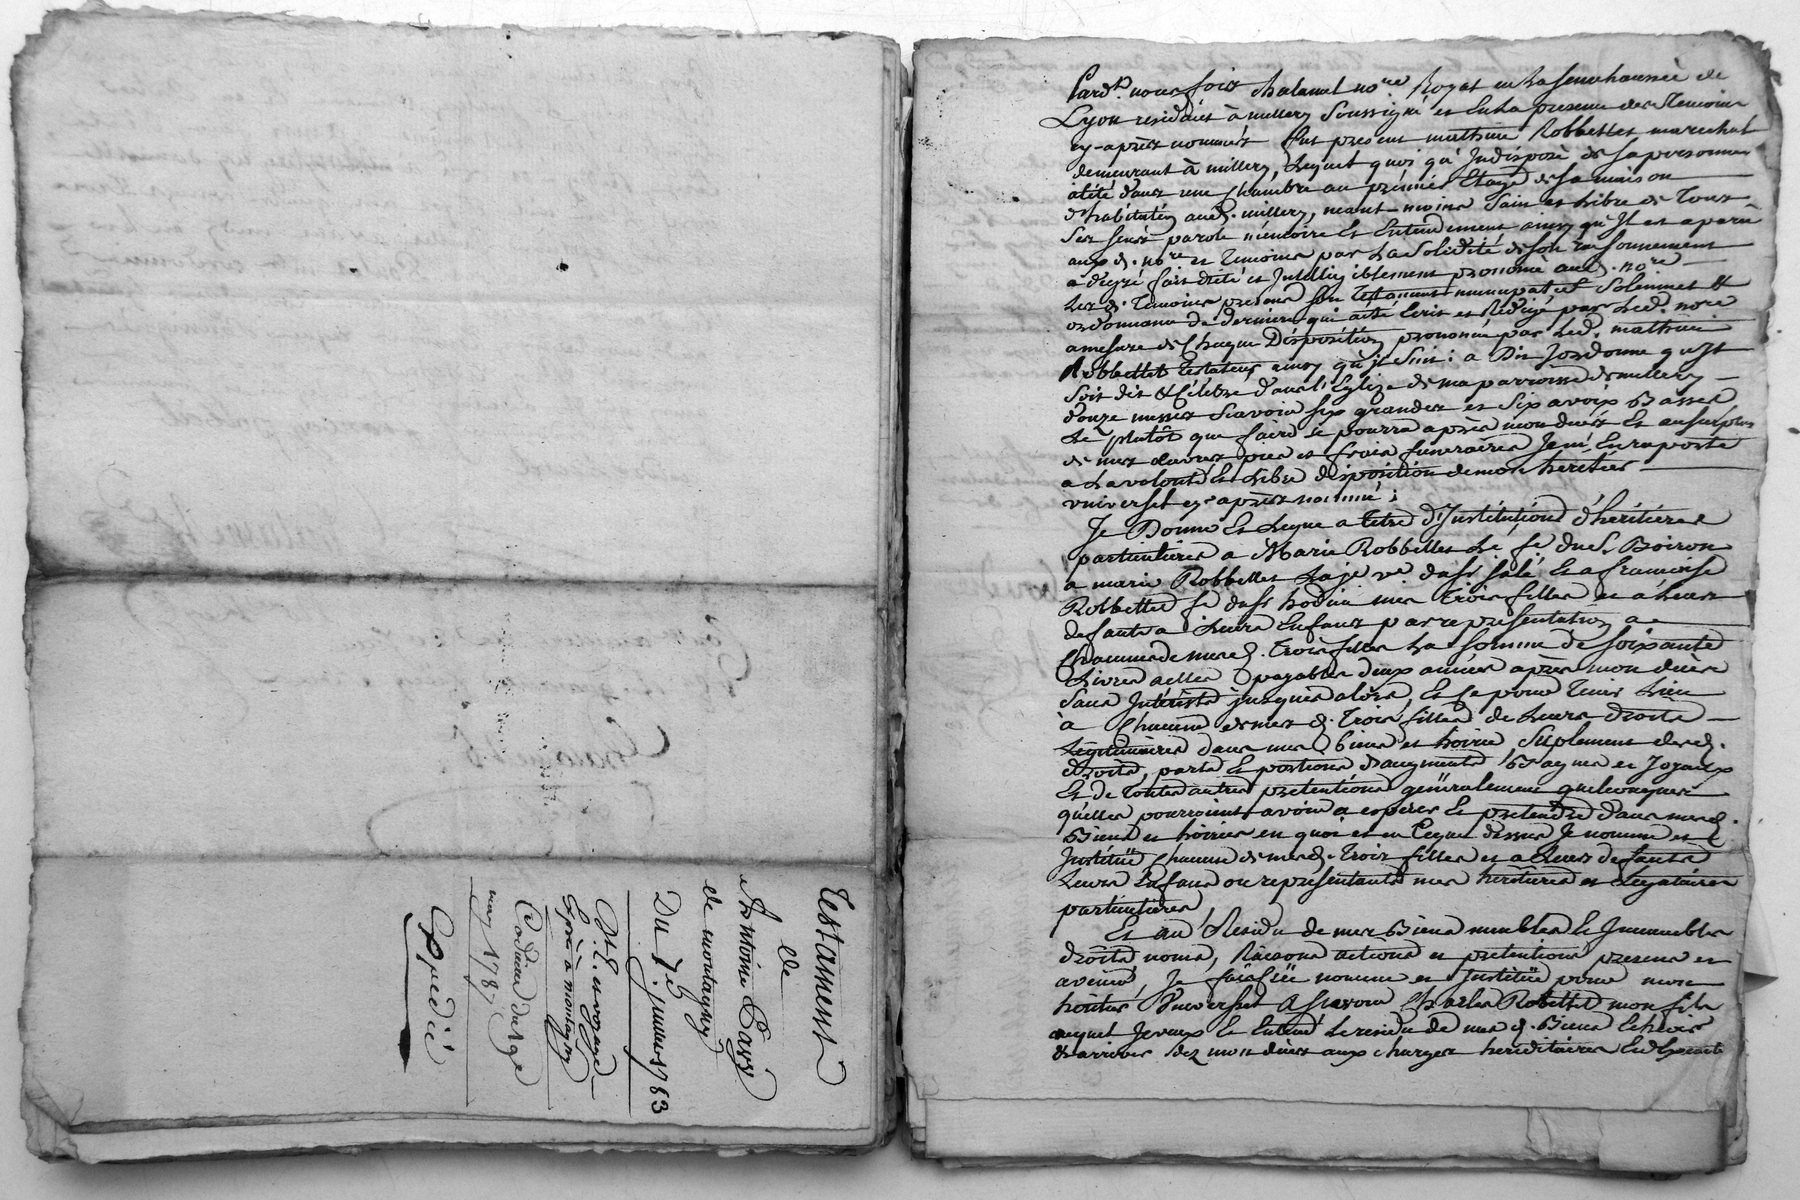 Testament
de
Antoine Cazy
de montagny
Du 15. janvier 1763
Expedié
Pard.t nous foix chalamel no.re Royal en La senechaussée de
Lyon residant à millery soussigné et En La presence des Temoins
cy-après nommés fut present mathieu Robbellet marechal
demeurant à millery, Lequel quoi qu'Indisposé de sa personne
alité dans une chambre au premier Etage de sa maison
d'habitation aud. millery, neant-moins sain et Libre de Tous
ses sens parole mémoire Et Entendement ainsy qu'Il est aparu
aux d. no.re et Temoins par La solidité de son raisonnement
a de gré fait dicté et Intelligiblement prononcé aud. no.re
Les d. Temoins presens son Testament nuncupatif solennel et
ordonnance de derniere qui a été Ecrit et Redigé par Led. no.re
a mesure de Chaque Disposition prononcée par Led. mathieu
Robbellet Testateur ainsy qu'Il suit: a Dit J'ordonne qu'Il
soit dit et Célébré dans l'Eglize de ma parroisse de millery
douze messes sçavoir six grandes et six a voix Basse
Le plutôt que faire se pourra après mon decès Et au surplus
de mes œuvres pies et frois funeraires Je m'En raporte
a La volonté Et Libre disposition de mon heretier
universel cy-après nommé;
Je Donne Et Legue a titre d'Institution d'héritieres
particulieres a Marie Robbellet Lé fe du S. Boiron
a marie Robbellet La je ve du Sr Jalé Et a francoise
Robbellet fe du Sr hodieu mes Trois filles et à Leurs
defauts a Leurs Enfans par representation a
Chacune de mesd. Trois filles La somme de soixante
Livres a Elles payables deux années après mon decès
sans Intérêts jusques alors, Et Ce pour Tenir Lieu
à Chacune de mes d. Trois filles de Leurs droits
Légitimaires dans mes biens et hoirie, suplement desd.
droits, parts Et portions d'augments Bagues et Joyaux
Et de toutes autres pretentions généralement quelconques
qu'elles pourroient avoir a esperer Et pretendre dans mesd.
Biens et hoiries en quoi et en Ceque dessus Je nomme et
Institüe Chacune de mesd. Trois filles et a Leurs defauts
Leurs Enfans ou représentants mes heritieres et Legataires
particulieres
Et au Résidu de mes Biens meubles Et Immeubles
droits noms, Raisons actions et pretentions presens et
avenir, Je fais créé nomme et Institüe pour mon
heritier Universel a sçavoir Charles Robellet mon fils
auquel Je veux Et Entend Le residu de mes d. Biens Et hoirie
arriver dez mon decès aux charges hereditaires